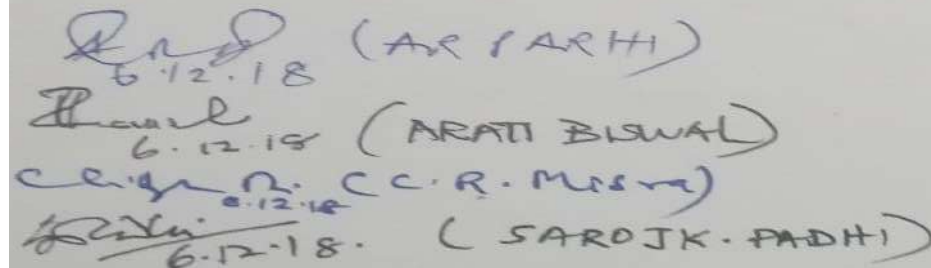 6.12.18 (AR SARHI)
6.12.18 (ARATI BISWAL)
6.12.18 (C.R. Misra)
6.12.18. (SAROJ K. PADHI)